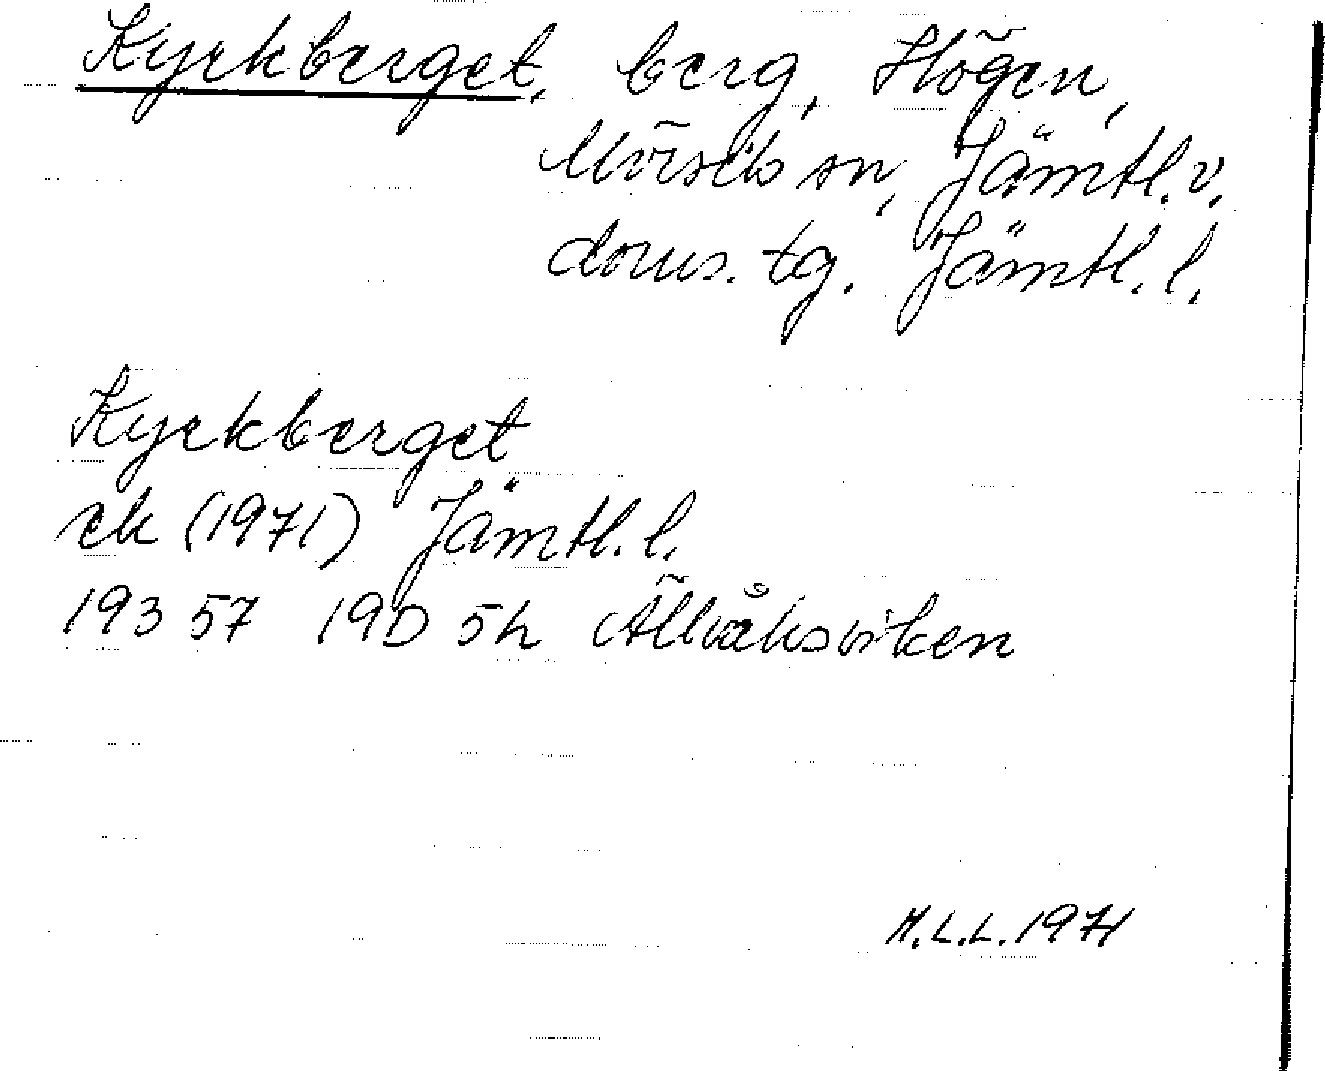 Kyrkberget, berg, Högen,
Mörsils sn, Jämtl.v.
doms. tg. Jämtl. l.
Kyrkberget
ek (1971) Jämtl. l.
193 57 19D 5h Ällvåksviken
M.L.L. 1971